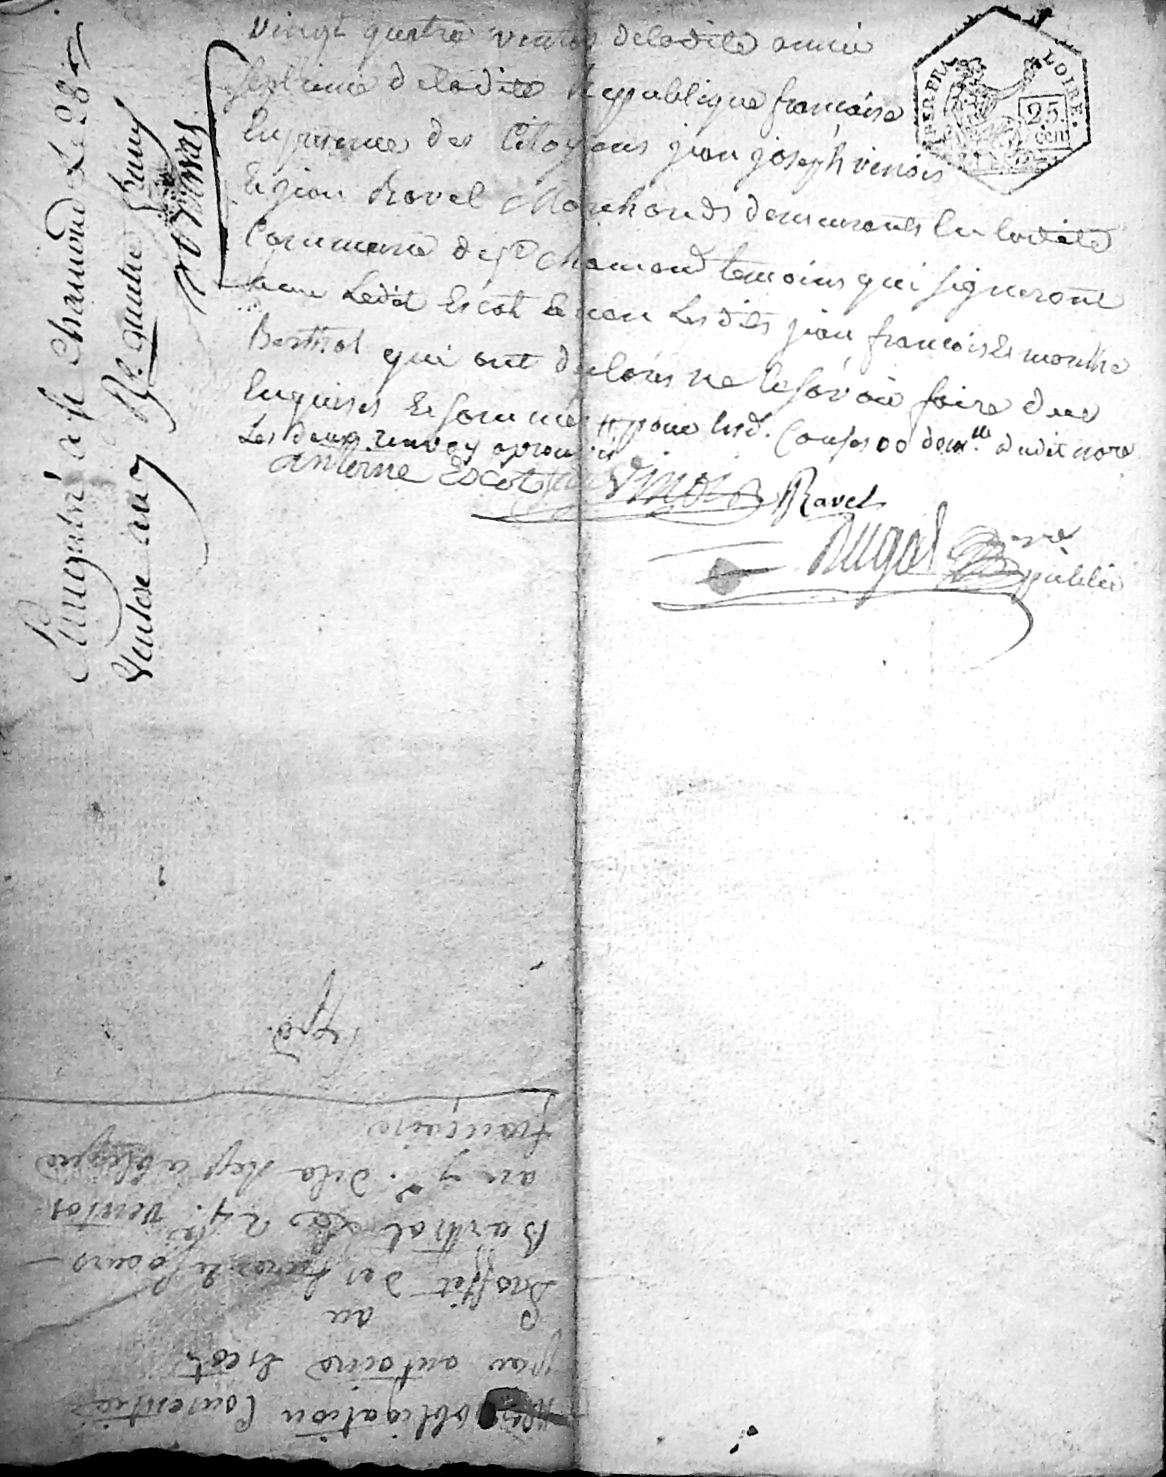 vingt quatre ventos deladite année
septieme deladitte Republique francaise
En presence des Citoyens jean joseph vinois
Et jean Ravel Marchands demeurants En laditte
Commune de st chamond temoins qui signeront
avec Ledit Escot Et non Lesdits jean francois Et marthe
Berthol qui ont declarés ne le savoir faire de ce
Enquis Et sommés
Les deux renvoy aprouvés
antoine Escot Vinois Ravel
Dugas nre
public
LOIRE.
25
cen
Enregistré a st Chamond Le 28
ventose an 7 Rç. quatre francs
Rpd.
obligation Consentie
par antoine Escot
au
proffit des freres Et soeurs
Barthol Le 24e. ventos
an 7e. dela Republique
francaise